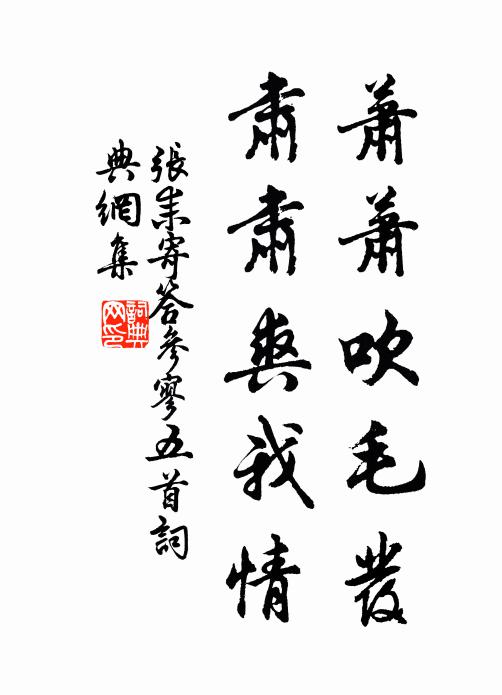 蕭蕭吹毛發
肅肅爽我情
張耒寄答參寥五首詞
典網集
詞典
网印